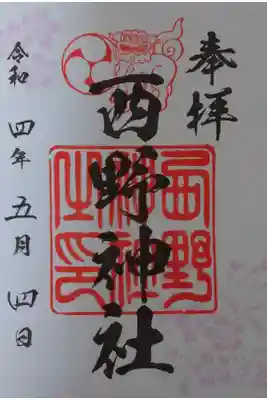 奉拝
西野神社
西野
神社
之印
令和四年五月四日